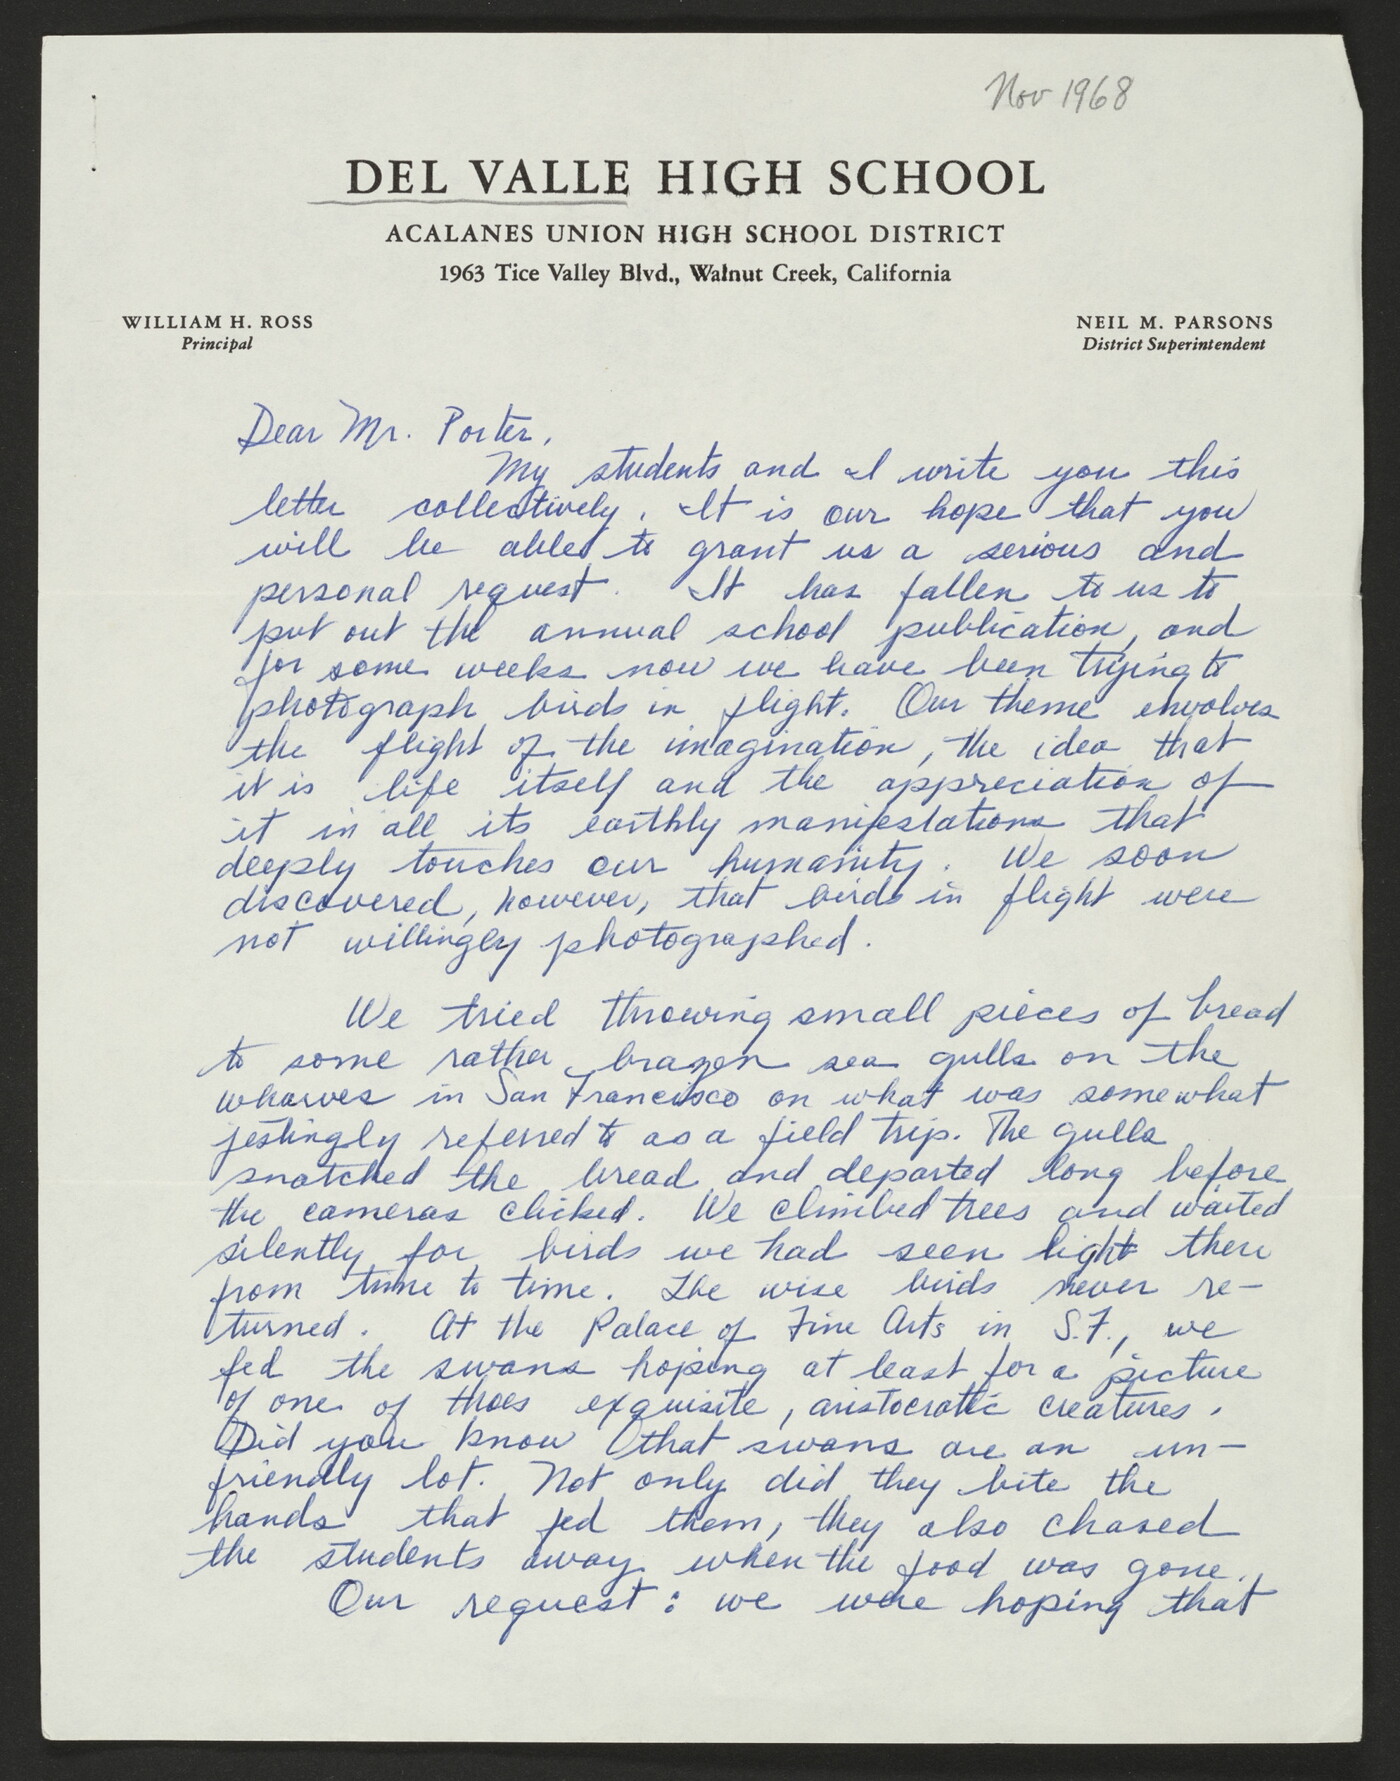 Nov 1968
DEL VALLE HIGH SCHOOL
ACALANES UNION HIGH SCHOOL DISTRICT
1963 Tice Valley Blvd., Walnut Creek, California
WILLIAM H. ROSS
Principal
NEIL M. PARSONS
District Superintendent
Dear Mr. Porter,
My students and I write you this
letter collectively. It is our hope that you
will be able to grant us a serious and
personal request. It has fallen to us to
put out the annual school publication, and
for some weeks now we have been trying to
photograph birds in flight. Our theme envolves
the flight of the imagination, the idea that
it is life itself and the appreciation of
it in all its earthly manifestations that
deeply touches our humanity. We soon
discovered, however, that birds in flight were
not willingly photographed.
We tried throwing small pieces of bread
to some rather brazen sea gulls on the
wharves in San Francisco on what was somewhat
jestingly referred to as a field trip. The gulls
snatched the bread and departed long before
the cameras clicked. We climbed trees and waited
silently for birds we had seen light there
from time to time. The wise birds never re-
turned. At the Palace of Fine Arts in S.F., we
fed the swans hoping at least for a picture
of one of thoes exquisite, aristocratic creatures.
Did you know that swans are an un-
friendly lot. Not only did they bite the
hands that fed them, they also chased
the students away when the food was gone.
Our request: we were hoping that